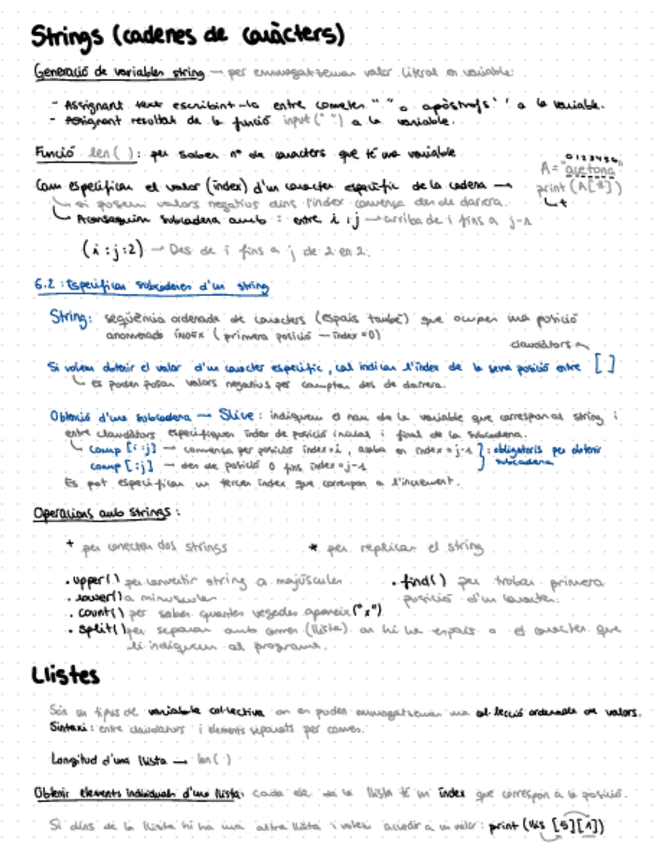 Strings (cadenes de caràcters)
Generació de variables string — per emmagatzemar valor literal en variable:
- Assignant text escribint-lo entre cometes " " o apòstrofs ' ' a la variable.
- Assignant resultat de la funció input(" ") a la variable.
Funció len( ): per saber nº de caracters que té una variable
0 1 2 3 4 5 6
A = "acetona"
Com especificar el valor (índex) d'un caracter específic de la cadena →
print (A[ ])
si posem valors negatius dins l'índex comença des de darrera.
Aconseguim subcadena amb : entre i i j → arriba de i fins a j-1
(i:j:2) — Des de i fins a j de 2 en 2.
6.2 : Especificar subcadenes d'un string
String: seqüència ordenada de caracters (espais també) que ocupen una posició
anomenada índex (primera posició — índex=0)
claudàtors
Si volem obtenir el valor d'un caracter específic, cal indicar l'índex de la seva posició entre [ ]
es poden posar valors negatius per comptar des de darrera.
Obtenció d'una subcadena — Slice: indiquem el nom de la variable que correspon al string i
entre claudàtors especifiquem índex de posició inicial i final de la subcadena.
comp [i:j] — comença per posició índex=i, acaba en índex=j-1
: obligatoris per obtenir
comp [:j] — des de posició 0 fins index=j-1
subcadena
Es pot especificar un tercer índex que correspon a l'increment.
Operacions amb strings:
+ per conectar dos strings
* per replicar el string
. upper() per convertir string a majúscules
. find() per trobar primera
. lower() a minuscules
posició d'un caracter.
. count() per saber quantes vegades apareix ("x")
. split() per separar amb comes (llista) on hi ha espais o el caracter que
li indiquem al programa.
Llistes
Són un tipus de variable col·lectiva on es poden emmagatzemar una col·lecció ordenada de valors.
Sintaxi: entre claudàtors i elements separats per comes.
Longitud d'una llista → len( )
Obtenir elements individuals d'una llista: cada de la llista té un índex que correspon a la posició.
Si dins de la llista hi ha una altra llista i volem accedir a un valor: print (llis [5][1])